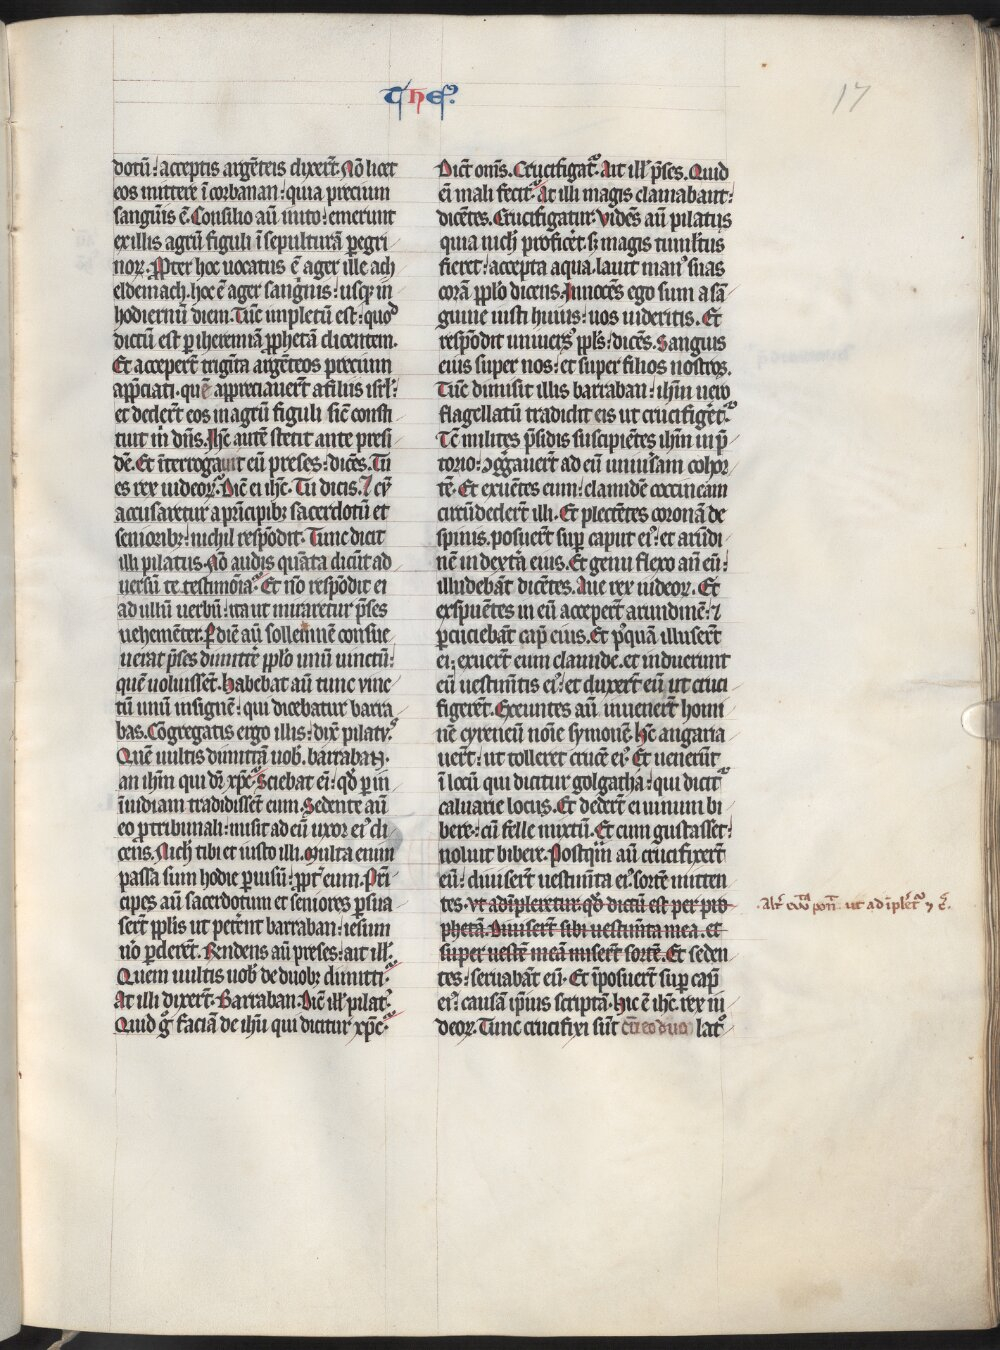 Theꝰ.
17
dotū: acceptis argēteis dixer̄t. Nō licet
eos mittere ī corbanan: quia precium
sanguīs ē. Consilio aū inito: emerunt
ex illis agrū figuli ī sepulturā peregri
noꝝ. Propter hoc uocatus ē ager ille ach
eldemach. hoc ē ager sanguīs: usqꝫ in
hodiernū diem. Tūc impletū est: quod
dictū est ꝑ iheremiā ꝓphetā dicentem.
Et acceper̄t triginta argēteos precium
app̄ciati. quē appreciauer̄t a filiis isrl̄:
et deder̄t eos in agrū figuli sic̄ consti
tuit m̄ dn̄s. Ihc̄ autē stetit ante presi
dē. Et īterrogauit eū preses: dicēs. Tu
es rex iudeoꝝ. Dic̄ ei ihc̄. Tu dicis. ⁊ cū
accusaretur a prīcipibꝫ sacerdotū et
senioribꝫ: nichil respōdit. Tunc dicit
illi pilatus. Nō audis quāta dicūt ad
uersū te testimōia. Et nō respōdit ei
ad ullū uerbū: ita ut miraretur p̄ses
uehemēter. Ꝑ diē aū sollemnē consue
uerat p̄ses dimitt̄e pplo unū uinctū:
quē uoluissēt. habebat aū tunc vinc
tū unū insignē: qui dicebatur barra
bas. Cōgregatis ergo illis: dix̄ pilatꝰ.
Quē uultis dimittā uob̄. barraban.
an ihm̄ qui dr̄ xpc̄. Sciebat ēi: qd̄ ꝑ in
īuidiam tradidissēt eum. Sedente aū
eo ꝓ tribunali: misit ad eū uxor eiꝰ di
cens. Nich̄ tibi et iusto illi. Multa enim
passa sum hodie ꝑ uisū: ꝓpt̄ eum. Prī
cipes aū sacerdotum et seniores ꝑsua
ser̄t pplis ut peter̄nt barraban: iesum
uo ꝑderēt. Rn̄dens aū preses: ait ill̄.
Quem uultis uob̄ de duobꝫ dimitti.
At illi dixer̄t. Barraban. Dic̄ ill̄ pilatꝰ.
Quid g̊ faciā de ihū qui dicitur xpc̄.
Dic̄t om̄s. Crucifigatᷣ. Ait ill̄ p̄ses. Quid
ēi mali fecit. At illi magis clamabant:
dicētes. Crucifigatur. Vidēs aū pilatus
quia nich̄ proficēt. sꝫ magis tumltus
fieret: accepta aqua. lauit manꝰ suas
corā pplo dicens. Innocēs ego sum a sā
guine iusti huius: uos uideritis. Et
respōdit uniuersꝰ ppls: dicēs. Sanguis
eius super nos: et super filios nostros.
Tūc dimisit illis barraban: ihm̄ uero
flagellatū tradidit eis ut crucifigēt.ᷣ
Tc̄ milites p̄sidis suscipiētes ihm̄ in p̄
torio: ꝯgg̊auer̄t ad eū uniūsam cohor
tē. Et exuētes eum: clamidē coccineam
circūdeder̄t illi. Et plectētes coronā de
spinis. posuer̄t suꝑ caput eiꝰ: et arūdi
nē in dext̄a eius. Et genu flexo aū eū:
illudebāt dicētes. Aue rex iudeoꝝ. Et
exspuētes in eū acceper̄t arundinē: ⁊
ꝑcuciebāt cap̄ eius. Et pꝰquā illuser̄t
ei: exuer̄t eum clamide. et induerunt
eū uestimītis eiꝰ: et duxer̄t eū ut cruci
figerēt. Exeuntes aū inuener̄t homi
nē cyreneū noīe symonē. hc̄ angaria
uer̄t: ut tolleret crucē eiꝰ. Et uenerūt
ī locū qui dicitur golgatha: qui dicitᷣ
caluarie locus. Et deder̄t ei uinum bi
bere: cū felle mixtū. Et cum gustasset:
noluit bibere. Postqm̄ aū crucifixer̄t
eū: diuiser̄t uestimīta eiꝰ sortē mitten
tes. vt adīpleretur qd̄ dictū est per pro
phetā. Diuiser̄t sibi uestimīta mea. et
super uestē meā miser̄t sortē. Et seden
tes: seruabāt eū. Et īposuer̄t suꝑ cap̄
eiꝰ causā ip̄ius scriptā. hic ē ihc̄. rex iu
deoꝝ. Tunc crucifixi sūt cū eo duo latᷣ